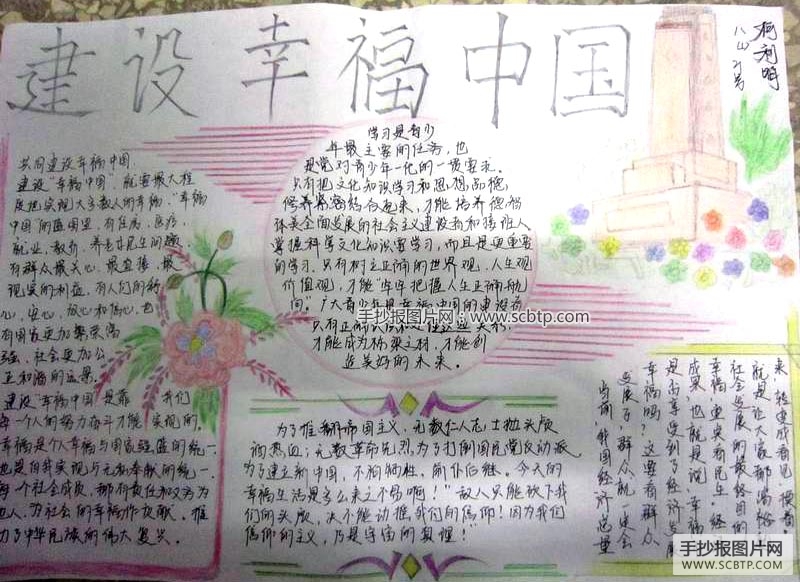 建设幸福中国
柯利明
八(4) 21号
共同建设幸福中国
建设“幸福中国”就要最大程
度地实现大多数人的幸福。“幸福
中国”的蓝图里,有住房,医疗,
就业,教育,养老等民生问题,
有群众最关心,最直接,最
现实的利益,有人们的称
心,安心,放心和信心,也
有国家更加繁荣富
强,社会更加公
正和谐的远景。
建设“幸福中国”是靠我们
每一个人的努力奋斗才能实现的。
幸福是个人幸福与国家强盛的统一,
也是自我实现与无私奉献的统一。
每个社会成员,都有责任和义务为
他人、为社会的幸福作贡献,推
动中华民族的伟大复兴。
学习是青少
年最主要的任务,也
是党对青少年一代的一贯要求。
只有把文化知识学习和思想品德
修养紧密结合起来,才能培养德智
体美全面发展的社会主义建设者和接班人
掌握科学文化知识需学习,而且是更重要
的学习,只有树立正确的世界观,人生观
价值观,才能“牢牢把握人生正确航
向”广大青少年是幸福中国的建设者
才能成为栋梁之材,才能创
造美好的未来。
手抄报图片网:www.scbtp.com
为了推翻帝国主义,无数仁人志士抛头颅
洒热血;无数革命先烈为了打倒国民党反动派
为了建立新中国,不怕牺牲,前仆后继。今天的
幸福生活是多么来之不易啊!“敌人只能砍下我
们的头颅,决不能动摇我们的信仰!因为我们
信仰的主义,乃是宇宙的真理!
就是让大家都
社会发展的最终目的
幸福,更实看民生,经
成果,也就是说,幸
是而享受到了经济发展
幸福吗?这要看群众
发展了,群众就一定会
当前,我国经济总量
手抄报图片网
WWW.SCBTP.COM